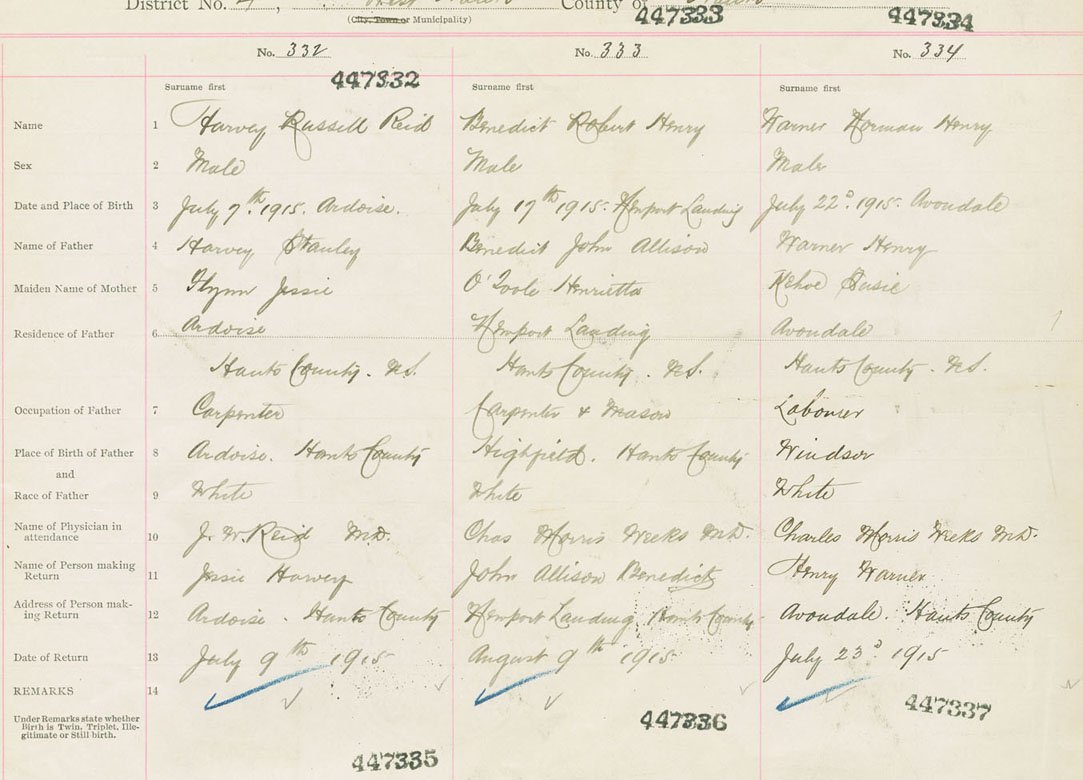 District No. 4, West Hants County of Hants
(City, Town or Municipality)
447333 447334
No. 332 No. 333 No. 334
447332
Surname first Surname first Surname first
Name 1 Harvey Russell Reid Benedict Robert Henry Warner Norman Henry
Sex 2 Male Male Male
Date and Place of Birth 3 July 7th. 1915. Ardoise. July 17th 1915. Newport Landing July 22d. 1915. Avondale
Name of Father 4 Harvey Stanley Benedict John Allison Warner Henry
Maiden Name of Mother 5 Flynn Jessie O'Toole Henrietta Kehoe Susie
Residence of Father 6 Ardoise Newport Landing Avondale
Hants County. N.S. Hants County. N.S. Hants County. N.S.
Occupation of Father 7 Carpenter Carpenter & Mason Labourer
Place of Birth of Father 8 Ardoise. Hants County Highfield. Hants County Windsor
and
Race of Father 9 White White White
Name of Physician in
attendance 10 J. W. Reid M.D. Chas Morris Weeks M.D. Charles Morris Weeks M.D.
Name of Person making
Return 11 Jessie Harvey John Allison Benedict Henry Warner
Address of Person mak-
ing Return 12 Ardoise. Hants County Newport Landing Hants County Avondale. Hants County
Date of Return 13 July 9th 1915 August 9th 1915 July 23d 1915
REMARKS 14
Under Remarks state whether
Birth is Twin, Triplet, Ille-
gitimate or Still birth.
447336 447337
447335